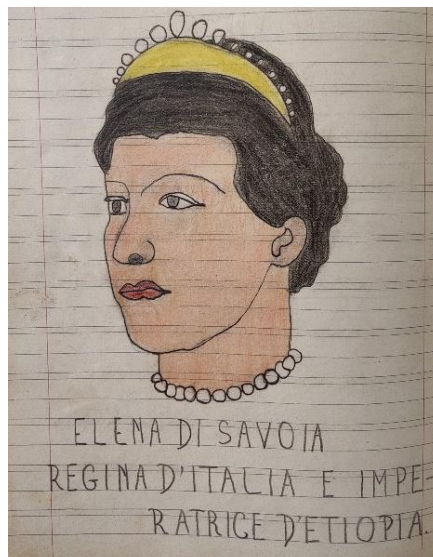 ELENA DI SAVOIA
REGINA D'ITALIA E IMPE-
RATRICE D'ETIOPIA.